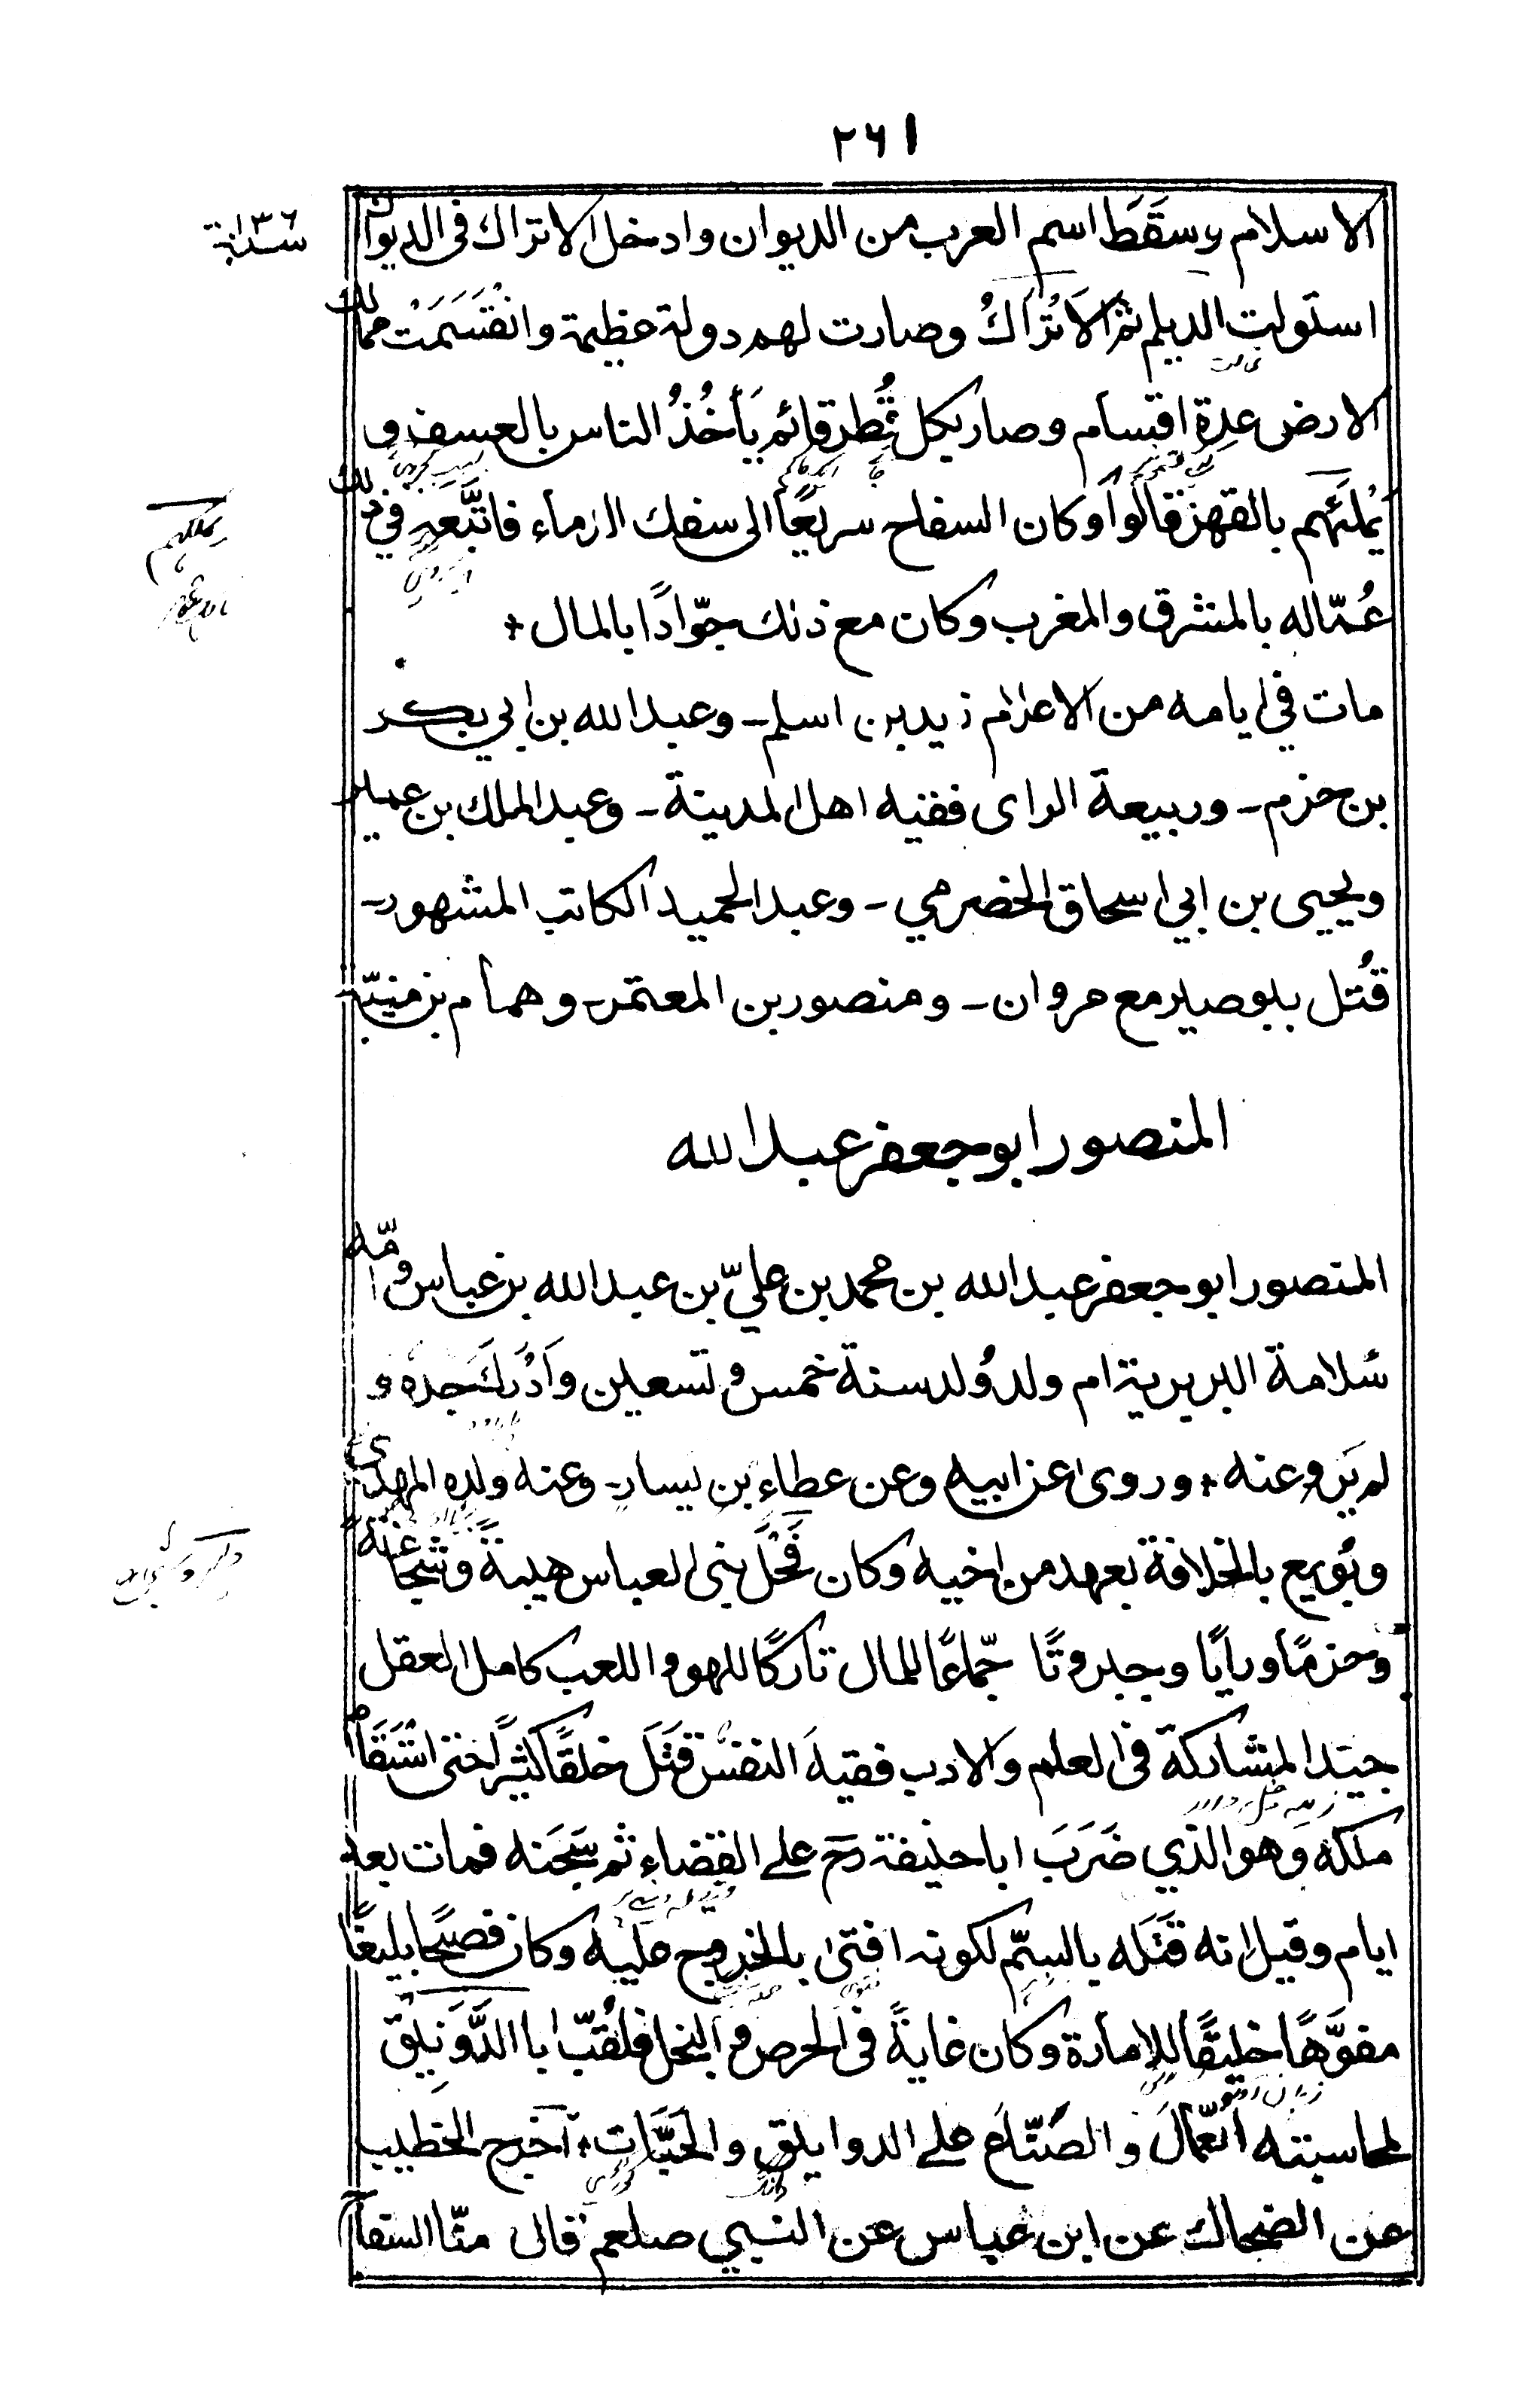 ٢٦١
الاسلام وسَقَطَ اسم العرب من الديوان وادخل الاتراك فى الديوان
سنة ١٣٦
استولت الديلم ثم الاَتْرَاكُ وصارت لهم دولة عظيمة وانْقَسَمَتْ ممالك
الارض عدة اقسام وصار بكل قُطر قائم يَأخُذُ الناس بالعسف و
يَمْلَئهم بالقهر قالوا وكان السفاح سريعًا الى سفك الدماء فاتَّبَعه في ذلك
عُمّاله بالمشرق والمغرب وكان مع ذلك جوّادًا بالمال +
مات في ايامه من الاعلام زيد بن اسلم ـ وعبد الله بن ابي بكر
بن حزم ـ وربيعة الراى فقيه اهل المدينة ـ وعبد الملك بن عمير
ويحيى بن ابي اسحاق الحضرمي ـ وعبد الحميد الكاتب المشهور ـ
قُتل ببوصير مع مروان ـ ومنصور بن المعتمر ـ وهمام بن منبّه
المنصور ابو جعفر عبد الله
المنصور ابو جعفر عبد الله بن محمد بن عليّ بن عبد الله بن عباس وامّه
سَلامة البربرية ام ولد وُلد سنة خمس و تسعين وَاَدْرَكَ جده و
لم يَرو عنه + وروى عن ابيه وعن عطاء بن يسار ـ وعنه ولده المهدي
وبُويع بالخلافة بعهد من اخيه وكان فَحْلَ بنى العباس هيبةً وشجاعةً
وحزمًا ورأيًا وجبروتًا جمّاعًا للمال تاركًا للهو واللعب كامل العقل
جيّد المشاركة فى العلم والادب فقيهَ النفس قَتَلَ خلقًا كثيرًا حتى اسْتَقَام
ملكه وهو الذي ضَرَبَ ابا حنيفة رح على القضاء ثم سَجَنه فمات بعد
ايام وقيل انه قَتَله بالسمّ لكونه افتى بالخروج عليه وكان فصيحًا بليغًا
مفوَّهًا خليقًا للامارة وكان غايةً فى الحرص و البخل فلُقّب ابا الدَّوَانيق
لمحاسبته العُمّالَ والصُنّاعَ على الدوانيق والحَبَّات + آخرج الخطيب
عن الضحاك عن ابن عباس عن النبي صلعم قال منّا السفاح